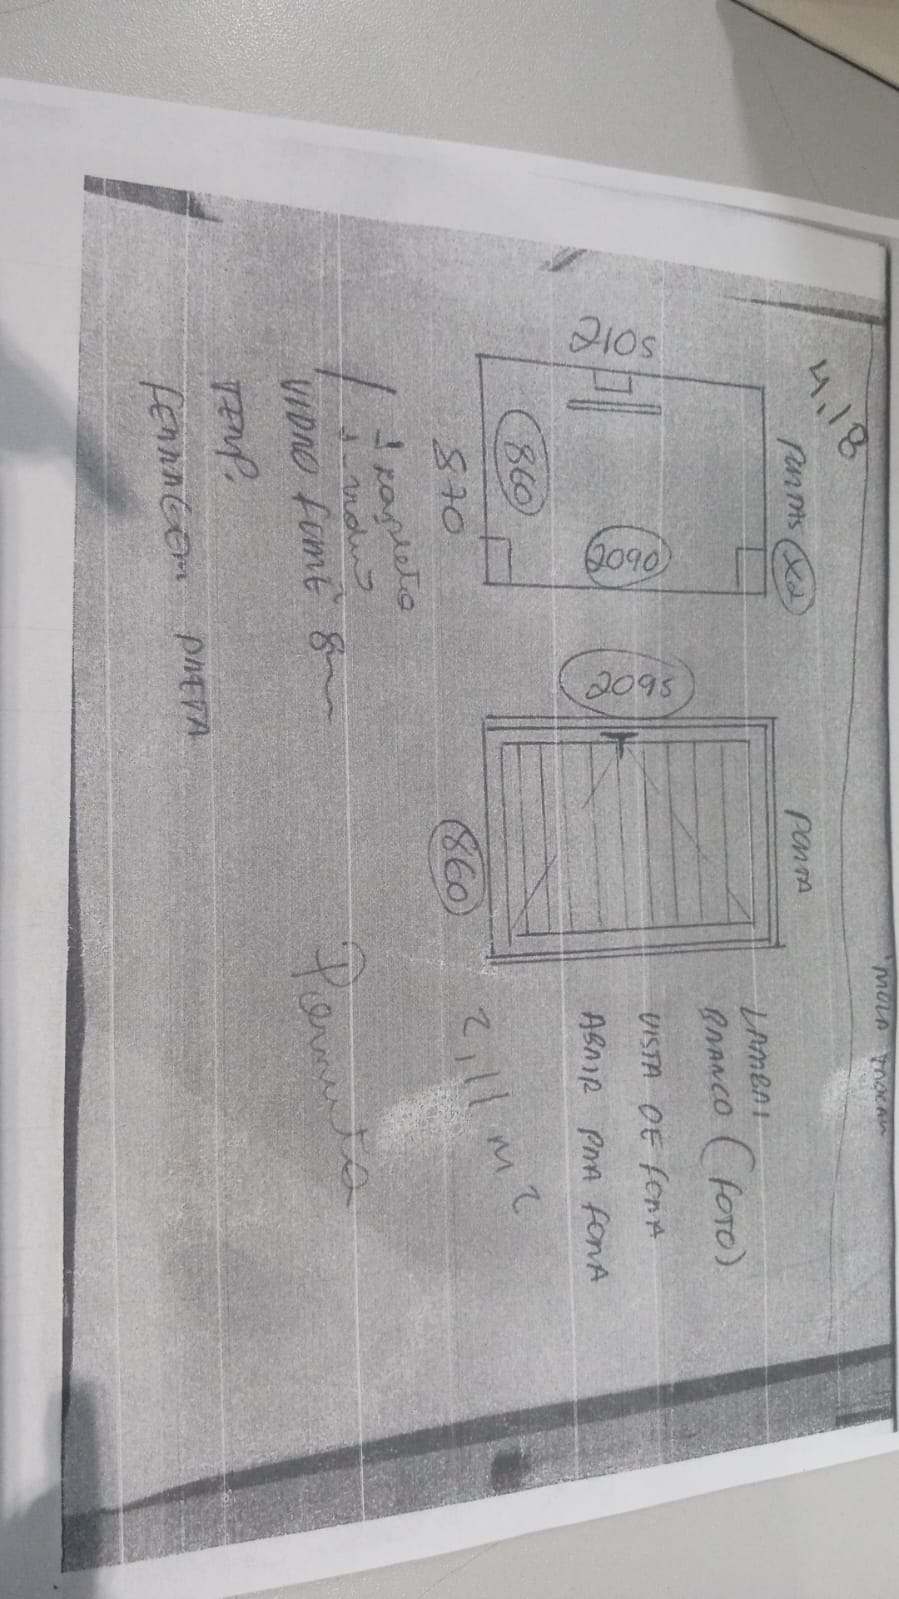 MOLA
4,18
PORTAS X2
2105
2090
860
870
1 completo
VIDRO FUMÊ 8mm
TEMP.
FERRAGEM PRETA
PORTA
2095
860
LAMBRI
BRANCO (FOTO)
VISTA DE FORA
ABRIR PRA FORA
2,11 m²